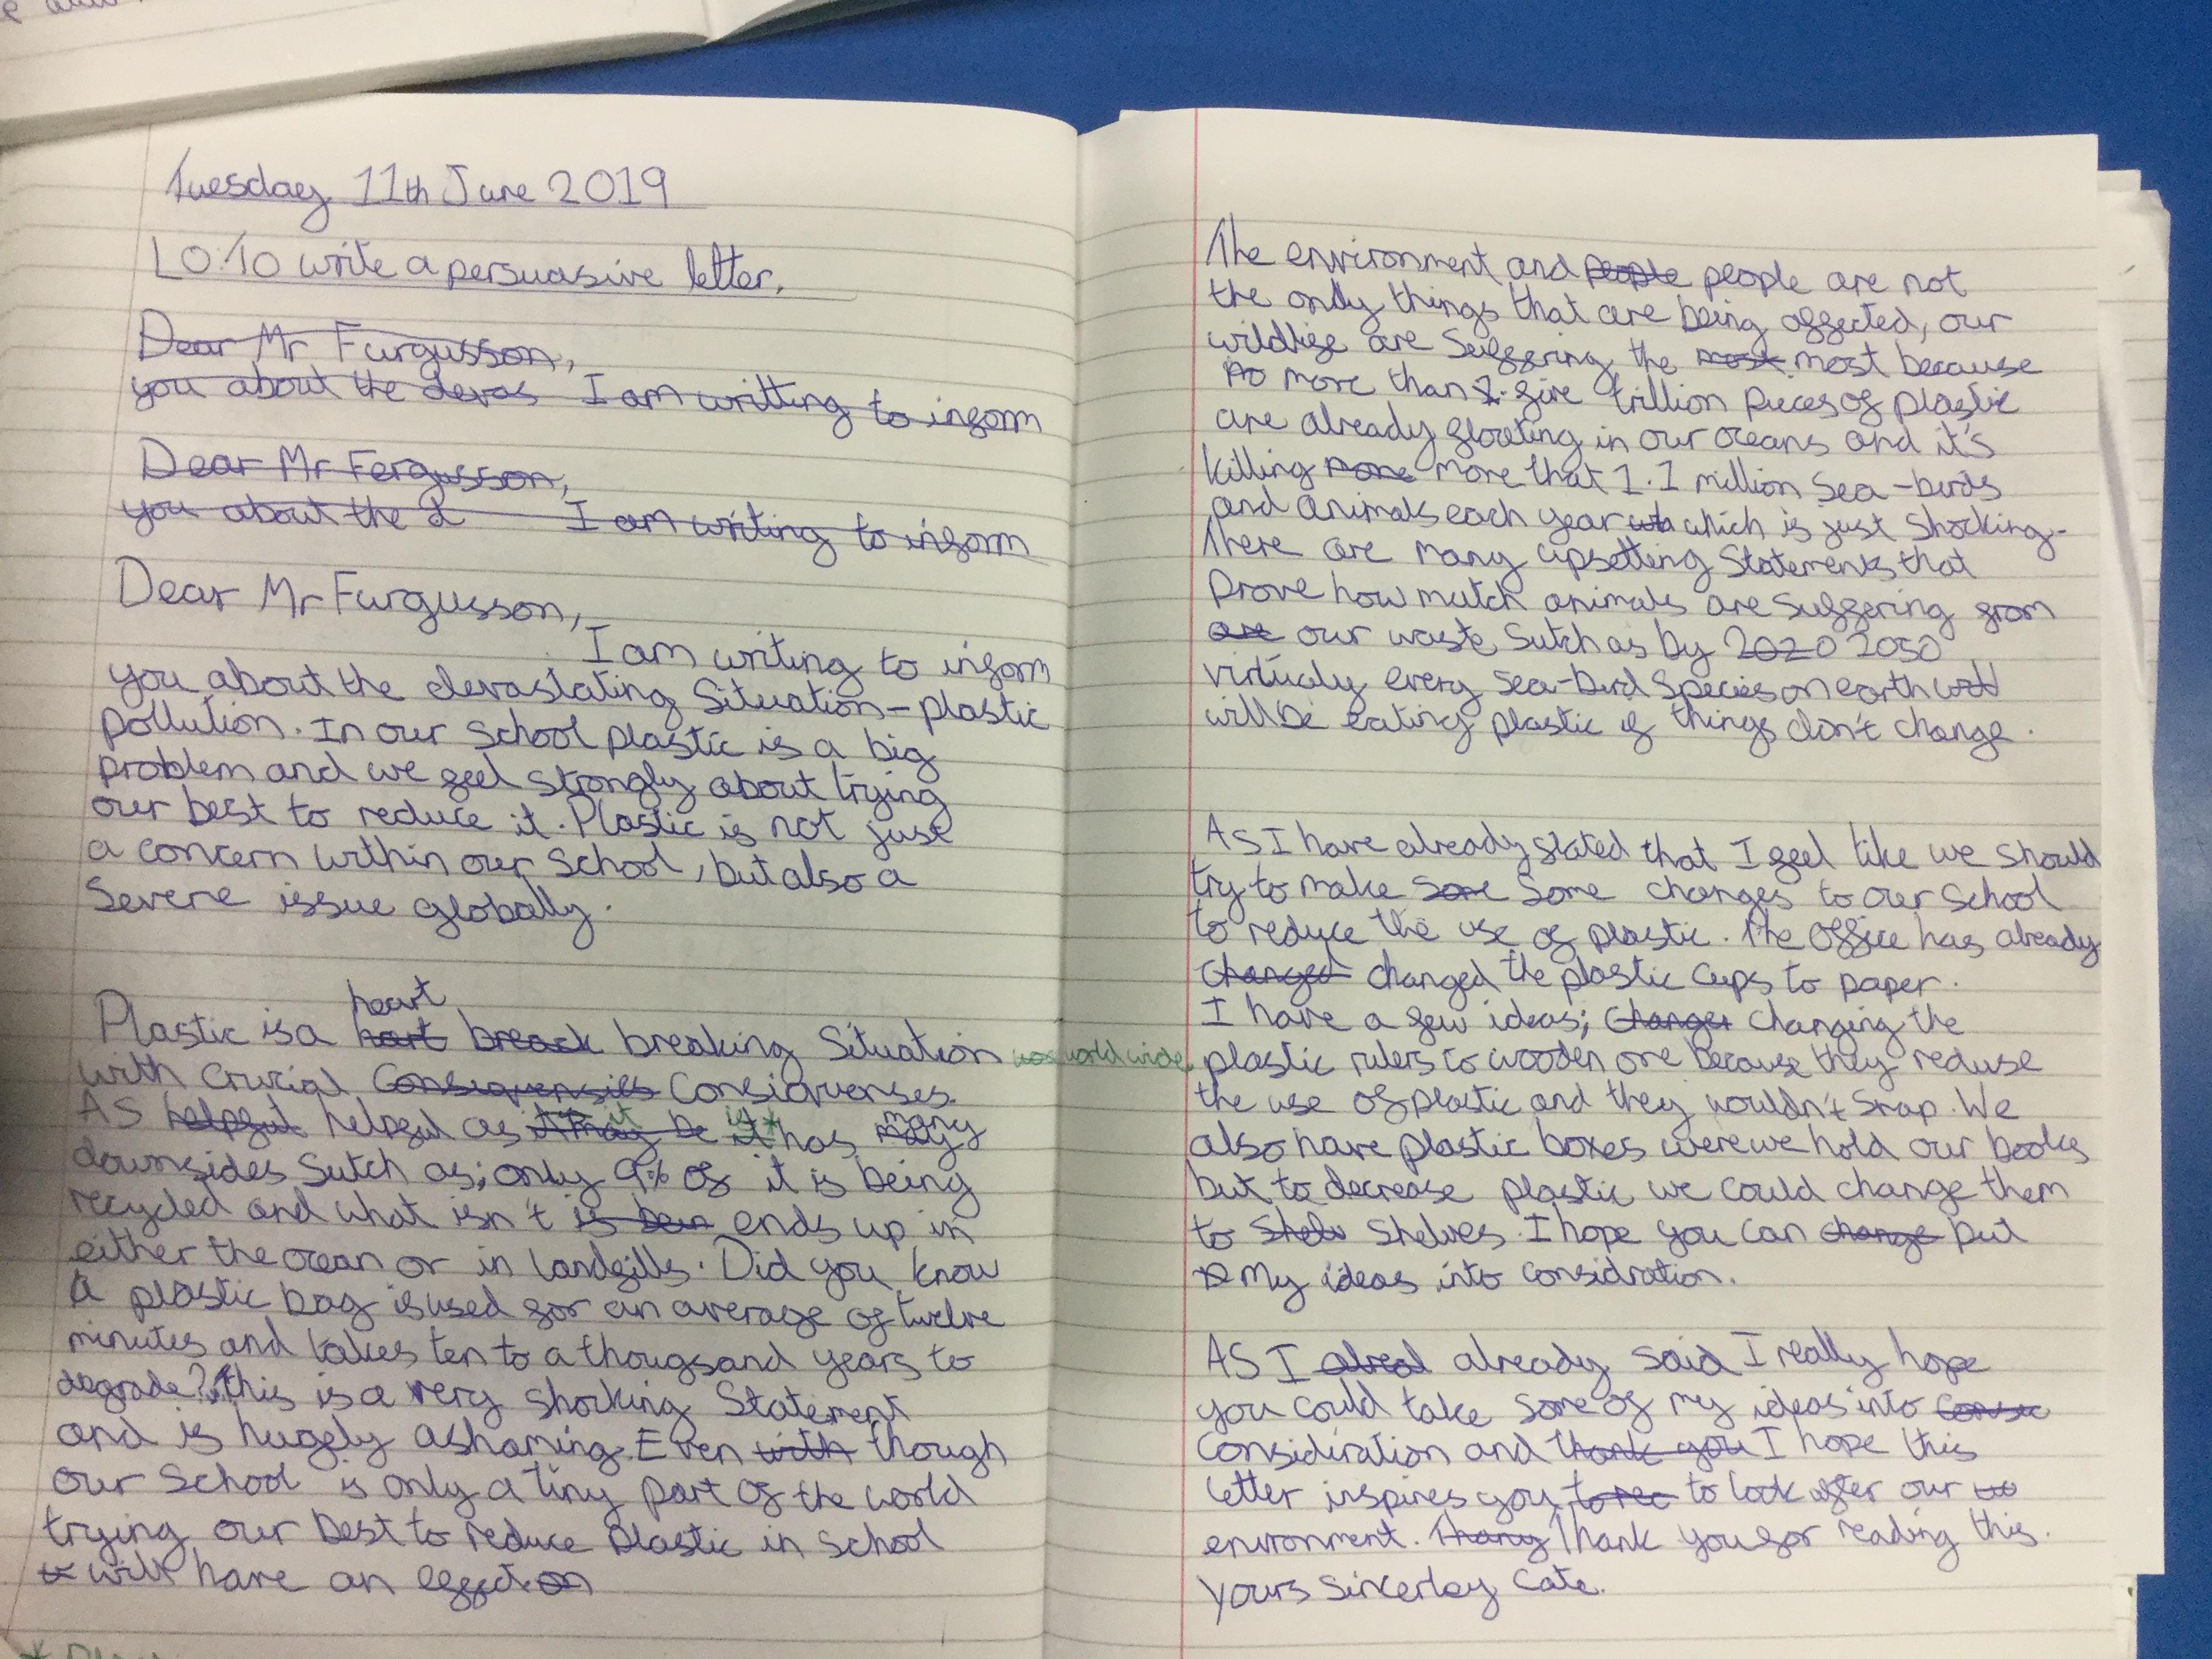 Tuesday 11th June 2019
LO: To write a persuasive letter.
Dear Mr Furgusson,
you about the devas I am writting to inform
Dear Mr Fergusson,
you about the d I am writing to inform
Dear Mr Furgusson,
I am writing to inform
you about the devastating situation - plastic
pollution. In our school plastic is a big
problem and we feel strongly about trying
our best to reduce it. Plastic is not just
a concern within our school, but also a
severe issue globally.
heart
Plastic is a hart breack breaking situation world wide
with crucial Consequensies Consiqvenses.
it is* many
As helpful helpful as it may be it has may
downsides sutch as; only 9% of it is being
recycled and what isn't is bein ends up in
either the ocean or in landfills. Did you know
a plastic bag is used for an average of twelve
minutes and takes ten to a thougsand years to
degrade? This is a very shocking statement
and is hugely ashaming. Even with though
our school is only a tiny part of the world
trying our best to reduce plastic in school
will have an effect on
The environment and people people are not
the only things that are being affected, our
wildlife are suffering the most most because
no more than 2. five trillion pieces of plastic
are already floating in our oceans and it's
killing more more that 1.1 million sea-birds
and animals each year wh which is just shocking.
There are many upsetting statements that
prove how mutch animals are suffering from
are our waste sutch as by 2020 2050
virtualy every sea-bird species on earth
will be eating plastic if things don't change.
As I have already stated that I feel like we should
try to make some some changes to our school
to reduce the use of plastic. The office has already
changed changed the plastic cups to paper.
I have a few ideas; changer changing the
plastic rulers to wooden one because they reduse
the use of plastic and they wouldn't snap. We
also have plastic boxes were we hold our books
but to decrease plastic we could change them
to shelv shelves. I hope you can change put
my ideas into considration.
As I alread already said I really hope
you could take some of my ideas into consic
Consideration and thank you I hope this
letter inspires you to rec to look after our
environment. Thany Thank you for reading this.
yours sincerley Cate.